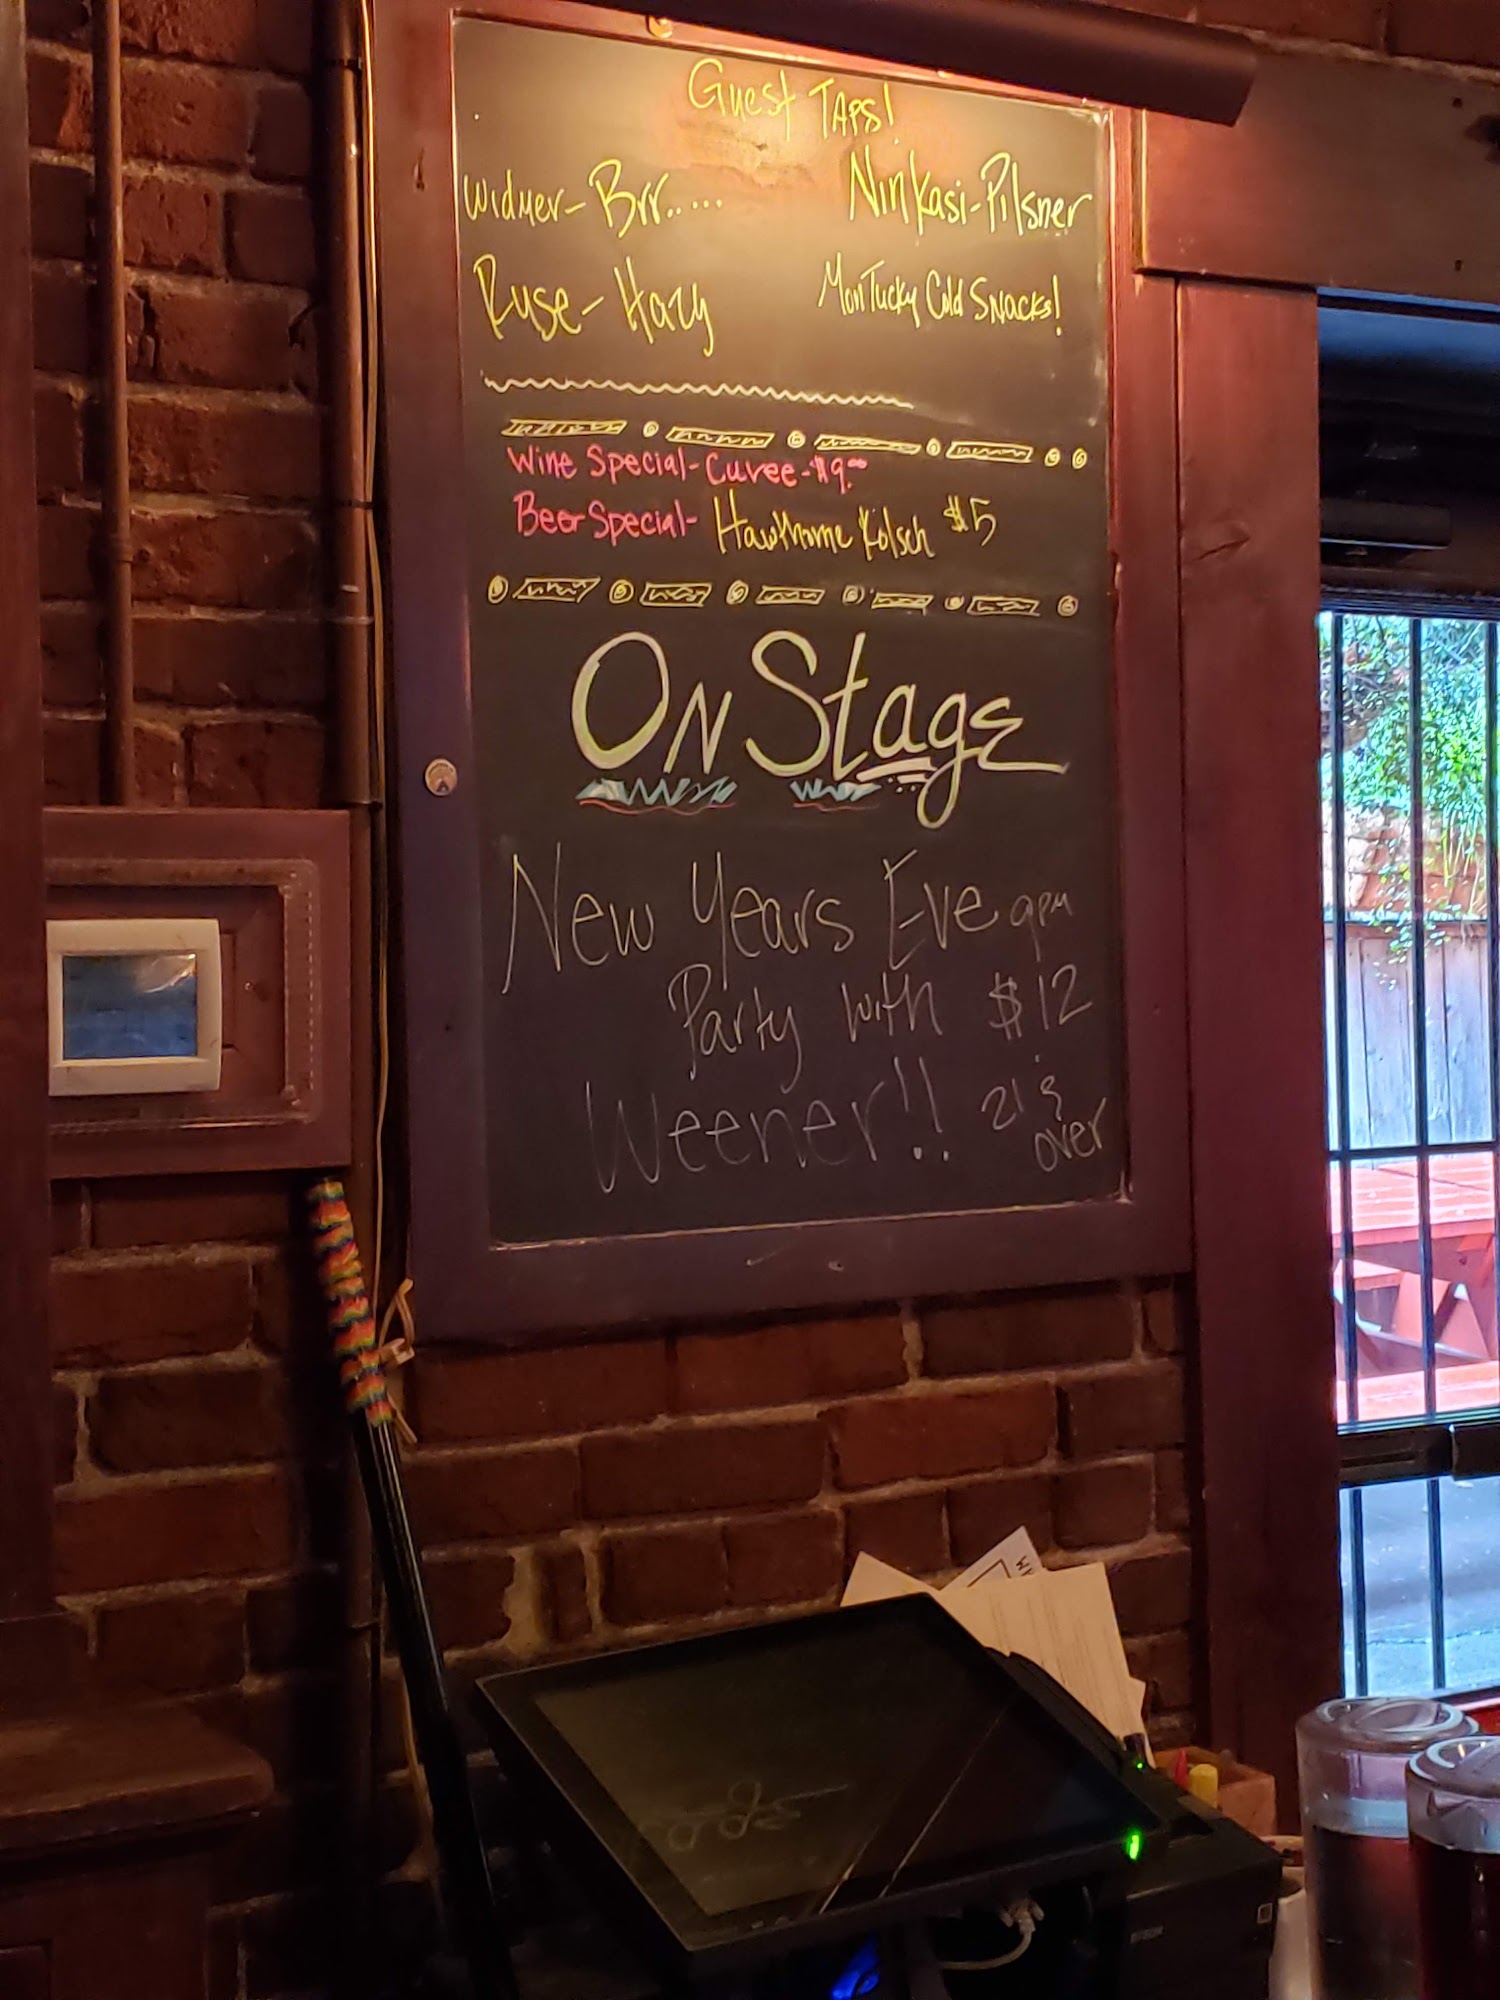 Guest TAPS!
Widmer-Brr.....
Ninkasi-Pilsner
Ruse-Hazy
MonTucky Cold SNACKS!
Wine Special-Cuvee-$9.00
Beer Special- Hawthorne Kolsch $5
ON Stage
New Years Eve 9pm
Party with $12
Weener!! 21 &
over